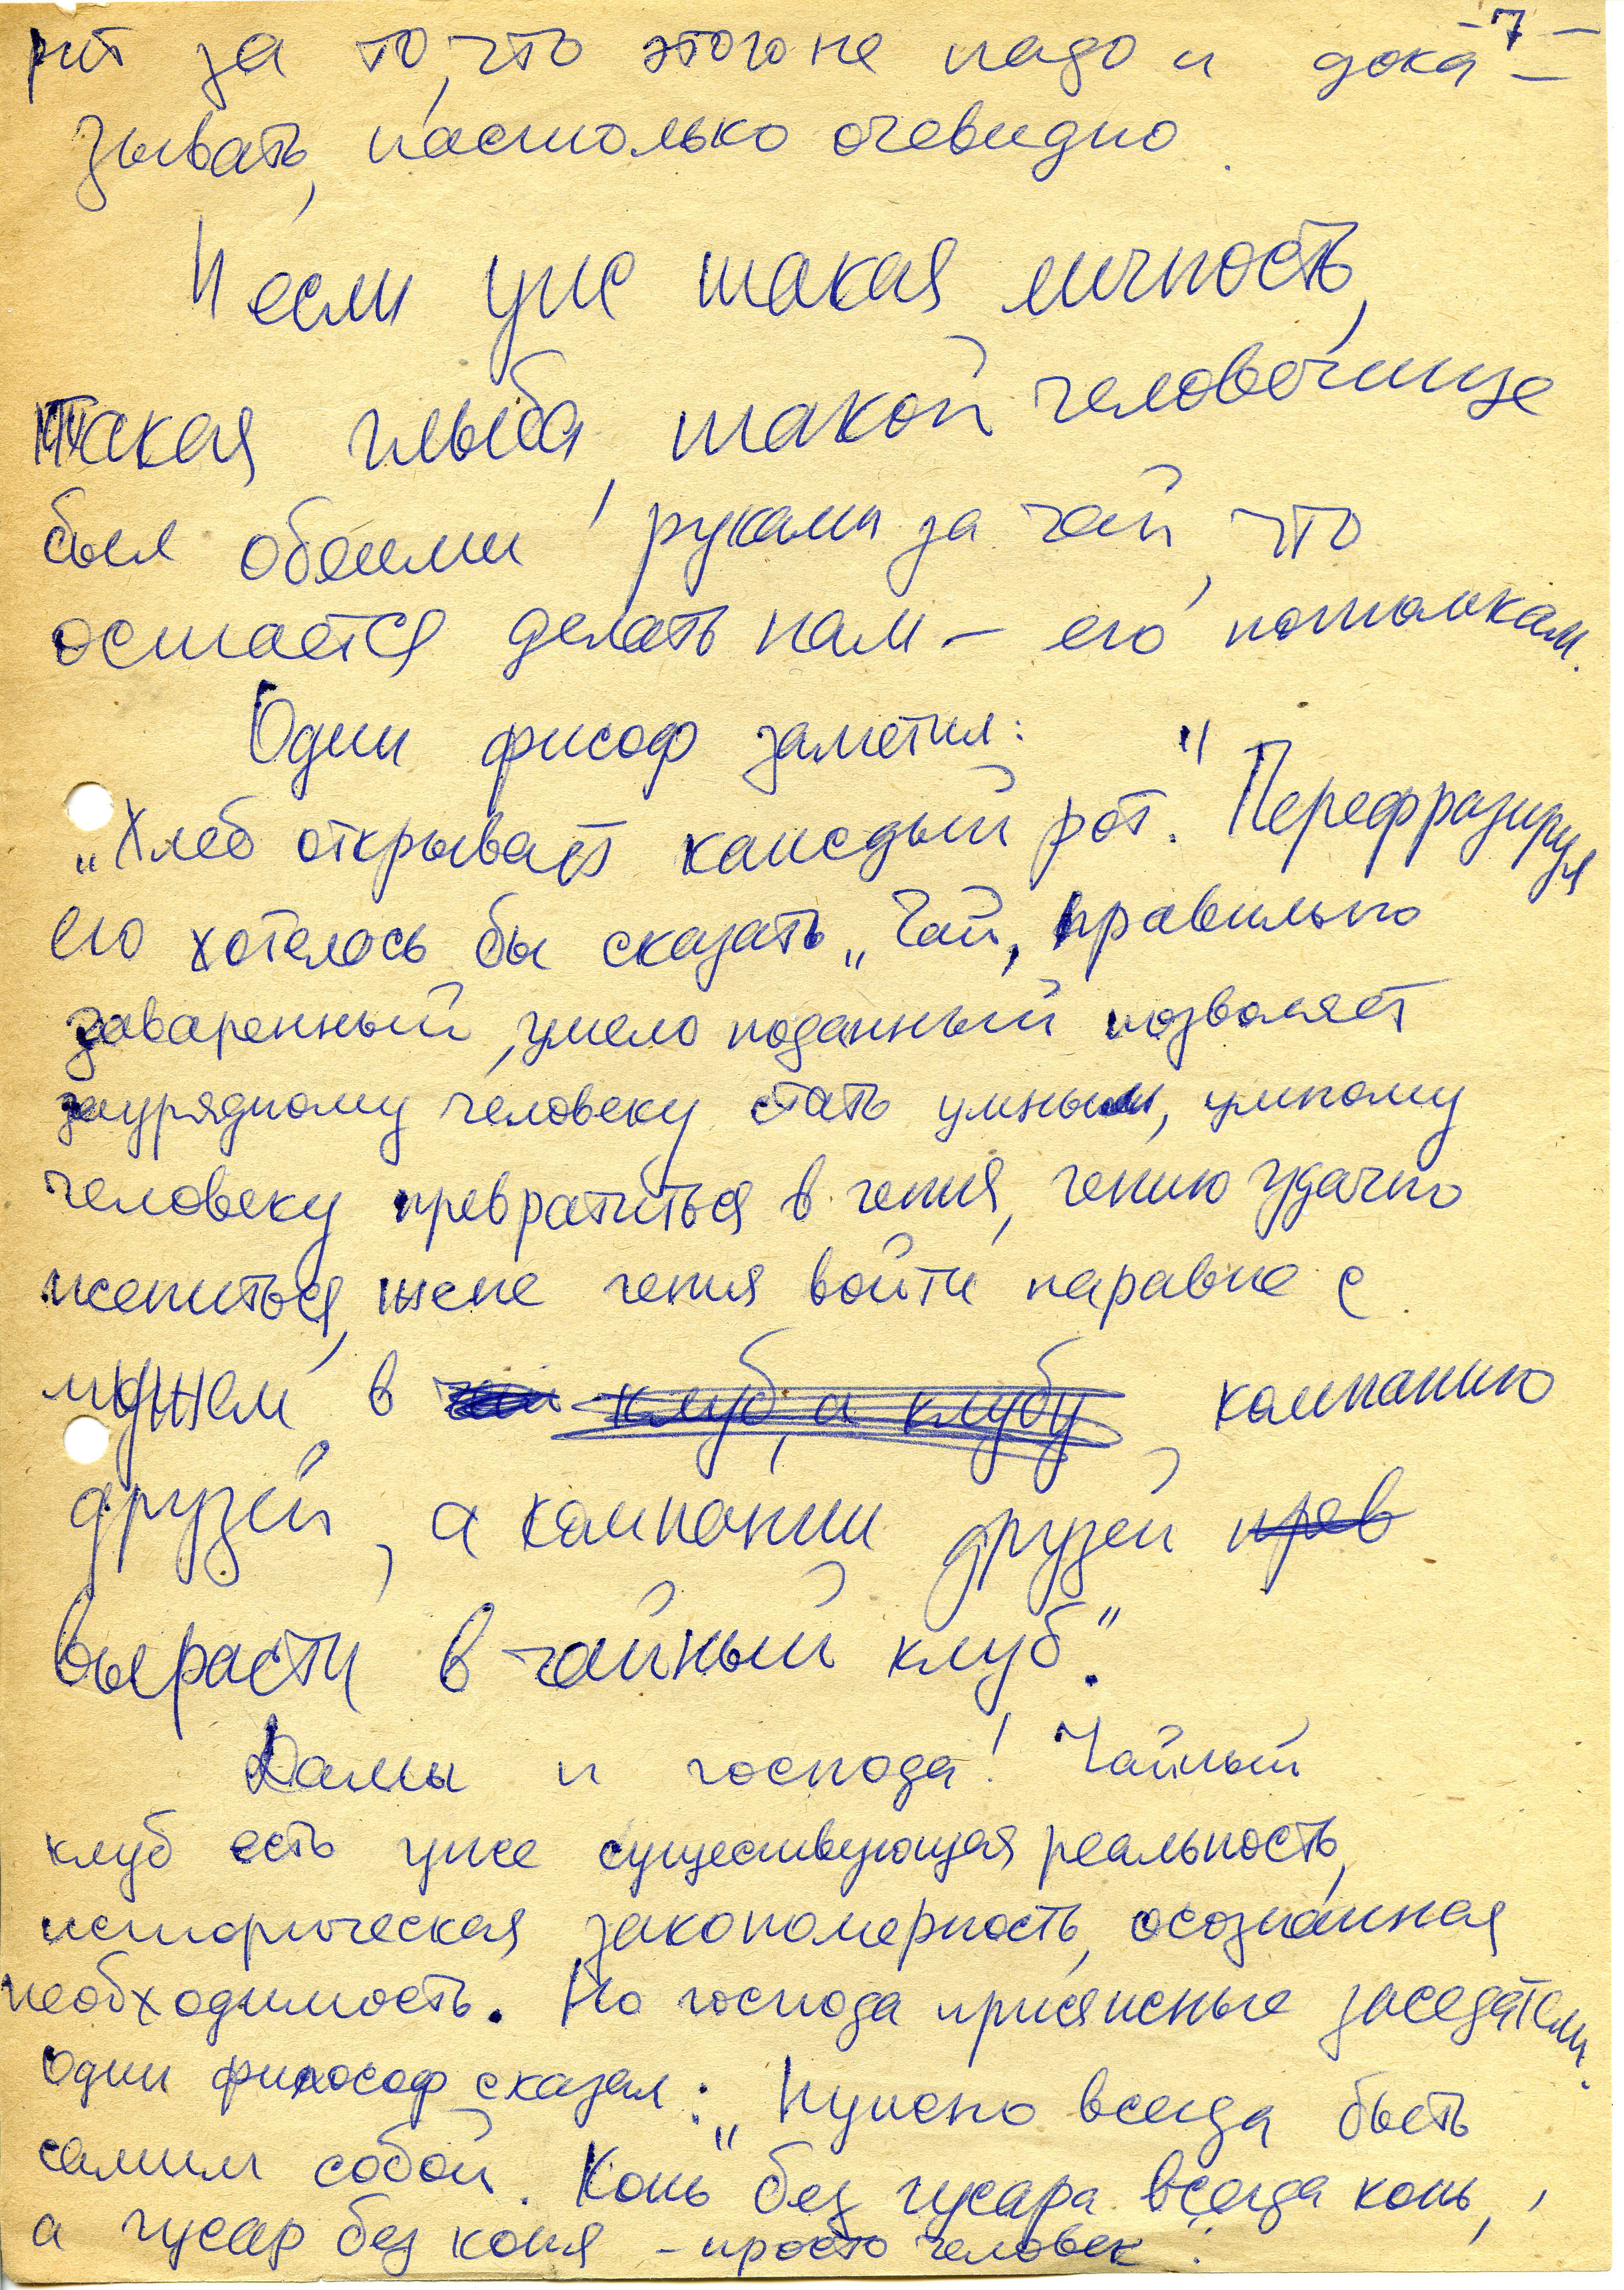 -7-
рит за то, что этого не надо и дока-
зывать, настолько очевидно.
И если уже такая личность,
такая глыба, такой человечище
был обеими руками за чай, что
остается делать нам – его потомкам.
Один фисоф заметил:
„Хлеб открывает каждый рот." Перефразируя
его хотелось бы сказать „Чай, правильно
заваренный, умело поданный позволяет
заурядному человеку стать умным, умному
человеку превратиться в гения, гению удачно
жениться, жене гения войти наравне с
мужем в клуб, а клубу компанию
друзей, а компании друзей прев
вырасти в чайный клуб."
Дамы и господа! Чайный
клуб есть уже существующая реальность,
историческая закономерность, осознанная
необходимость. Но господа присяжные заседатели.
Один философ сказал: „Нужно всегда быть
самим собой. Конь без гусара всегда конь,
а гусар без коня – просто человек".